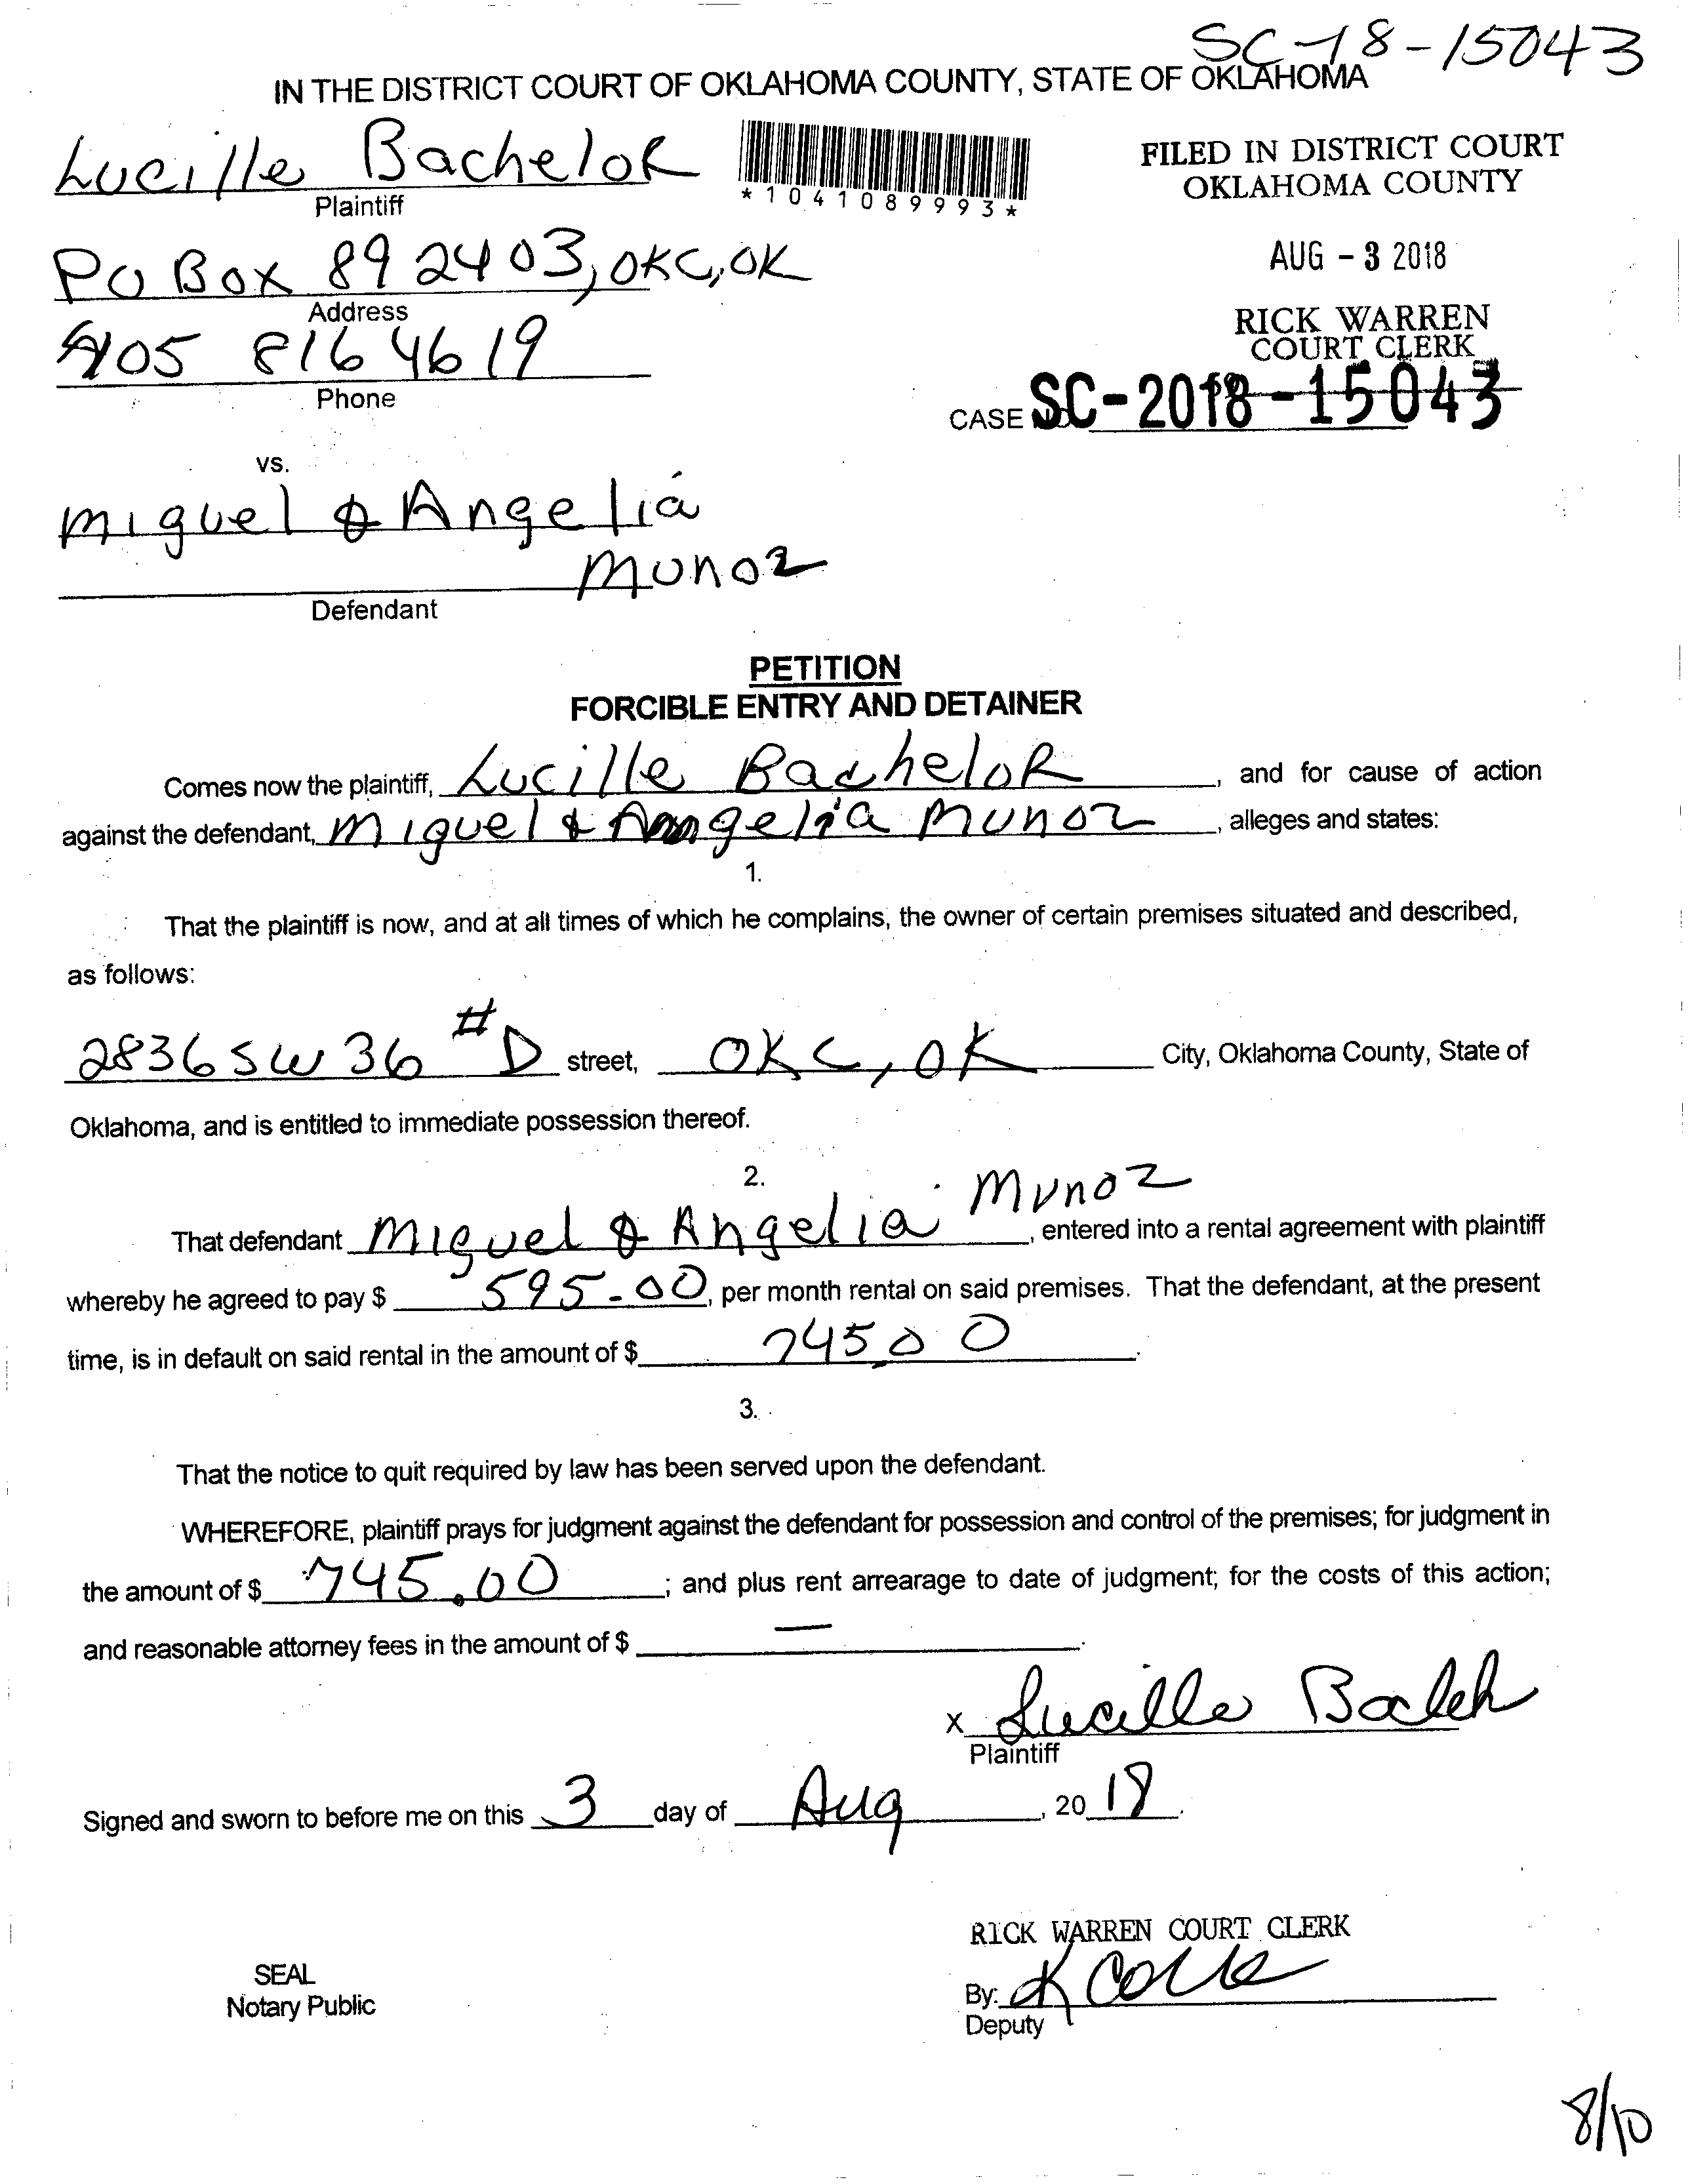 SC-18-15043
IN THE DISTRICT COURT OF OKLAHOMA COUNTY, STATE OF OKLAHOMA
Lucille Bachelor
Plaintiff
*1041089993*
FILED IN DISTRICT COURT
OKLAHOMA COUNTY
PO Box 892403, OKC, OK
Address
AUG - 3 2018
405 816 4619
Phone
RICK WARREN
COURT CLERK
CASE SC-2018-15043
vs.
Miguel & Angelia
Munoz
Defendant
PETITION
FORCIBLE ENTRY AND DETAINER
Comes now the plaintiff, Lucille Bachelor, and for cause of action
against the defendant, Miguel & Angelia Munoz, alleges and states:
1.
That the plaintiff is now, and at all times of which he complains, the owner of certain premises situated and described,
as follows:
2836 SW 36 #D street, OKC, OK City, Oklahoma County, State of
Oklahoma, and is entitled to immediate possession thereof.
2.
That defendant Miguel & Angelia Munoz, entered into a rental agreement with plaintiff
whereby he agreed to pay $ 595.00, per month rental on said premises. That the defendant, at the present
time, is in default on said rental in the amount of $ 745.00.
3.
That the notice to quit required by law has been served upon the defendant.
WHEREFORE, plaintiff prays for judgment against the defendant for possession and control of the premises; for judgment in
the amount of $ 745.00; and plus rent arrearage to date of judgment; for the costs of this action;
and reasonable attorney fees in the amount of $ —.
x Lucille Bachelor
Plaintiff
Signed and sworn to before me on this 3 day of Aug, 2018.
RICK WARREN COURT CLERK
SEAL
Notary Public
By:
Deputy
8/10